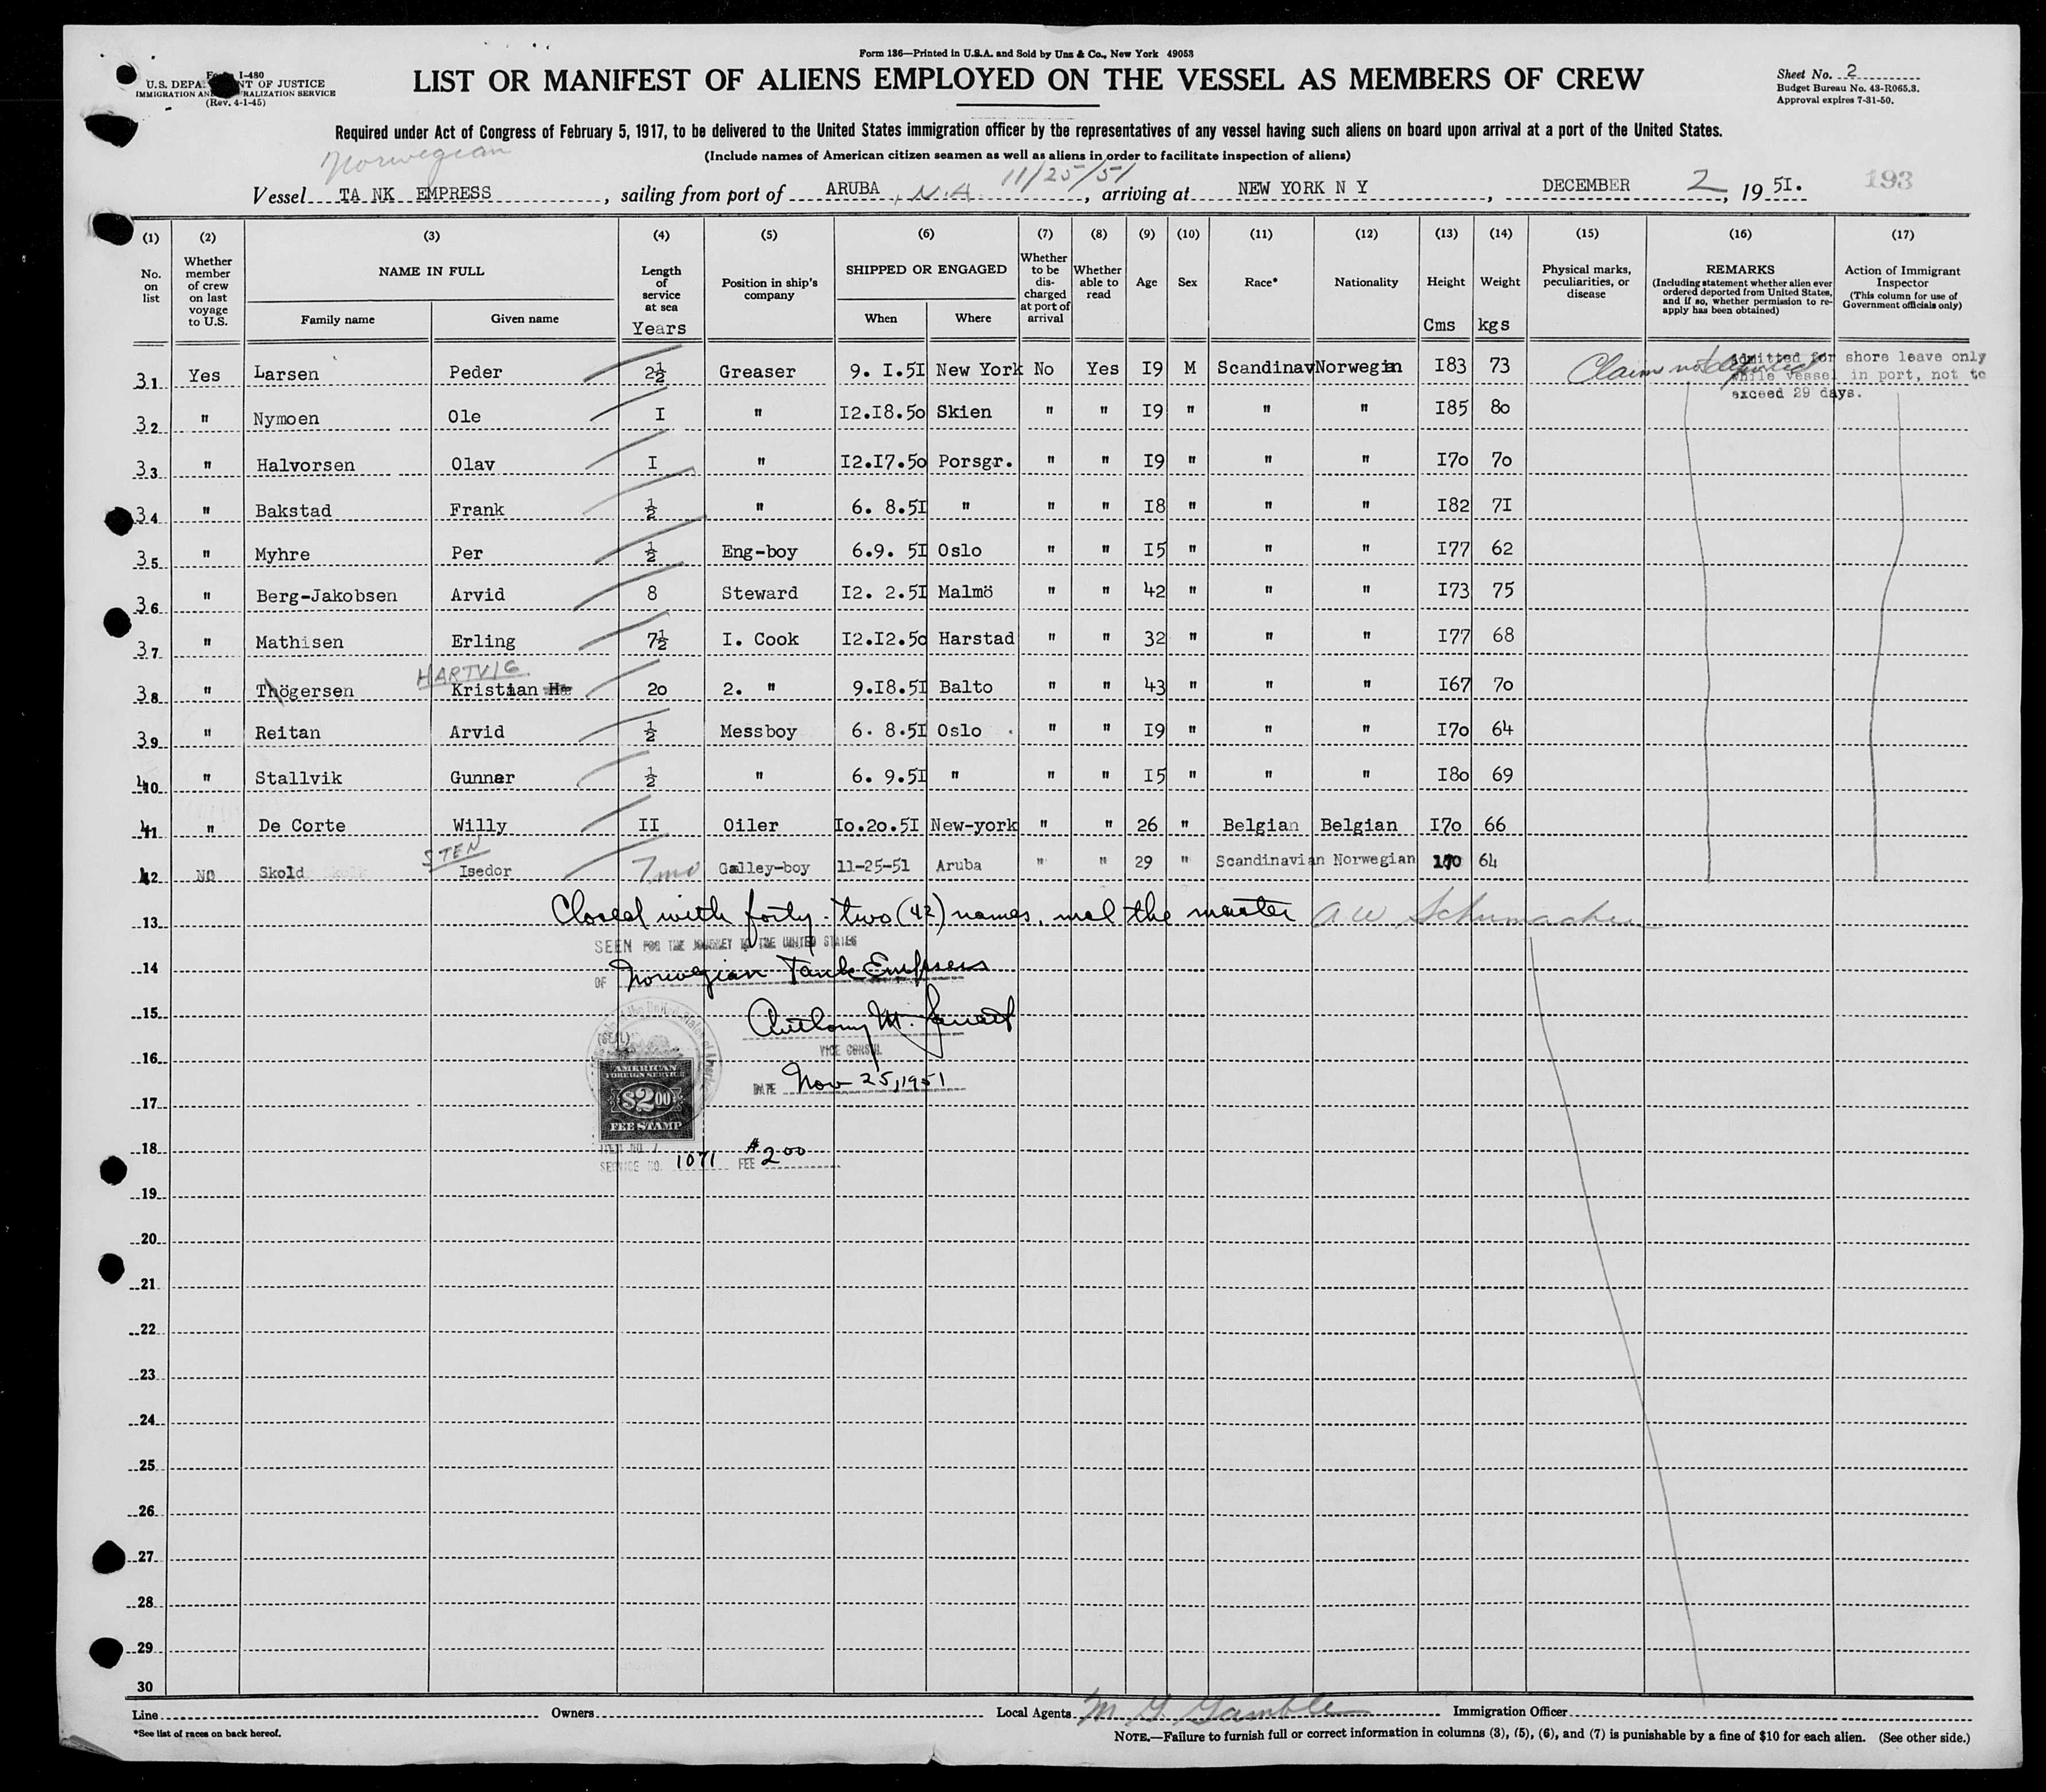 Form 136—Printed in U.S.A. and Sold by Unz & Co., New York 49053
Form I-480
U.S. DEPARTMENT OF JUSTICE
IMMIGRATION AND NATURALIZATION SERVICE
(Rev. 4-1-45)
LIST OR MANIFEST OF ALIENS EMPLOYED ON THE VESSEL AS MEMBERS OF CREW
Sheet No. 2
Budget Bureau No. 43-R065.3.
Approval expires 7-31-50.
Required under Act of Congress of February 5, 1917, to be delivered to the United States immigration officer by the representatives of any vessel having such aliens on board upon arrival at a port of the United States.
(Include names of American citizen seamen as well as aliens in order to facilitate inspection of aliens)
Norwegian
11/25/51
Vessel TA NK EMPRESS, sailing from port of ARUBA, N.A., arriving at NEW YORK N Y, DECEMBER 2, 19 5I. 193
(1) (2) (3) (4) (5) (6) (7) (8) (9) (10) (11) (12) (13) (14) (15) (16) (17)
No. on list
Whether member of crew on last voyage to U.S.
NAME IN FULL
Family name
Given name
Length of service at sea
Years
Position in ship's company
SHIPPED OR ENGAGED
When
Where
Whether to be discharged at port of arrival
Whether able to read
Age
Sex
Race*
Nationality
Height
Cms
Weight
kgs
Physical marks, peculiarities, or disease
REMARKS
(Including statement whether alien ever ordered deported from United States, and if so, whether permission to reapply has been obtained)
Action of Immigrant Inspector
(This column for use of Government officials only)
31 Yes Larsen Peder 2½ Greaser 9. I.5I New York No Yes I9 M Scandinav Norwegian I83 73 Claim not deported
admitted for shore leave only
while vessel in port, not to
exceed 29 days.
32 " Nymoen Ole I " I2.I8.50 Skien " " I9 " " " I85 80
33 " Halvorsen Olav I " I2.I7.50 Porsgr. " " I9 " " " I70 70
34 " Bakstad Frank ½ " 6. 8.5I " " " I8 " " " I82 7I
35 " Myhre Per ½ Eng-boy 6.9. 5I Oslo " " I5 " " " I77 62
36 " Berg-Jakobsen Arvid 8 Steward I2. 2.5I Malmö " " 42 " " " I73 75
37 " Mathisen Erling 7½ I. Cook I2.I2.50 Harstad " " 32 " " " I77 68
HARTVIG
38 " Thögersen Kristian Ha 20 2. " 9.I8.5I Balto " " 43 " " " I67 70
39 " Reitan Arvid ½ Messboy 6. 8.5I Oslo " " I9 " " " I70 64
40 " Stallvik Gunnar ½ " 6. 9.5I " " " I5 " " " I80 69
41 " De Corte Willy II Oiler I0.20.5I New-york " " 26 " Belgian Belgian I70 66
STEN
42 No Skold Isedor 7 mo Galley-boy 11-25-51 Aruba " " 29 " Scandinavian Norwegian 170 64
13 Closed with forty-two (42) names, incl the master A W Schumacher
SEEN FOR THE JOURNEY TO THE UNITED STATES
14
OF Norwegian Tank Empress
15
Anthony M.
(SEAL)
VICE CONSUL
16
AMERICAN
FOREIGN SERVICE
$2.00
FEE STAMP
DATE Nov 25, 1951
17
18
ITEM NO. 7
SERVICE NO. 1071 FEE $2.00
19
20
21
22
23
24
25
26
27
28
29
30
Line
Owners
Local Agents M. G. Gamble
Immigration Officer
*See list of races on back hereof.
NOTE.—Failure to furnish full or correct information in columns (3), (5), (6), and (7) is punishable by a fine of $10 for each alien. (See other side.)